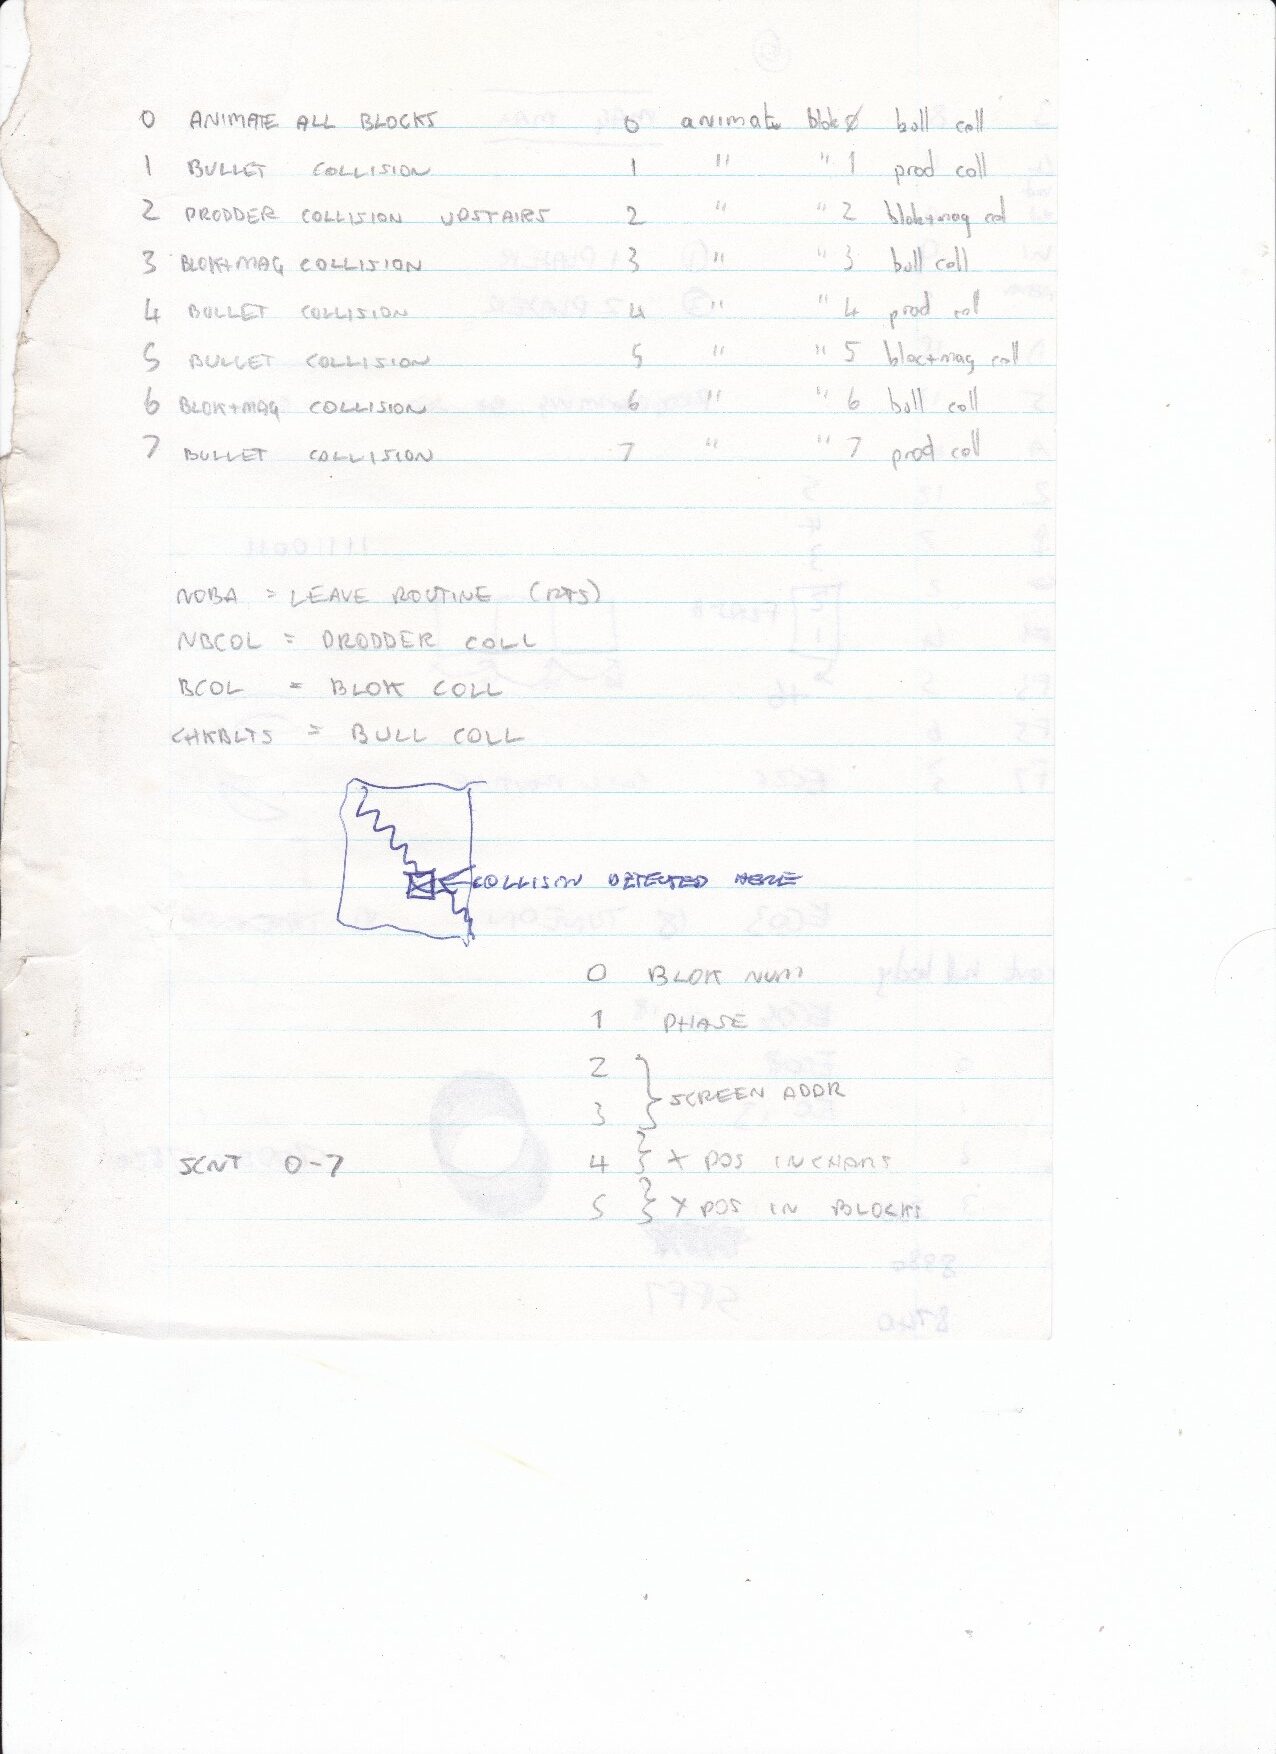 0 ANIMATE ALL BLOCKS 0 animate blok 0 bull coll
1 BULLET COLLISION 1 " " 1 prod coll
2 PRODDER COLLISION UPSTAIRS 2 " " 2 blok+mag col
3 BLOK+MAG COLLISION 3 " " 3 bull coll
4 BULLET COLLISION 4 " " 4 prod col
5 BULLET COLLISION 5 " " 5 bloc+mag coll
6 BLOK+MAG COLLISION 6 " " 6 bull coll
7 BULLET COLLISION 7 " " 7 prod coll
NOBA = LEAVE ROUTINE (RTS)
NBCOL = PRODDER COLL
BCOL = BLOK COLL
CHKBLTS = BULL COLL
COLLISON DETECTED HERE
0 BLOK NUM
1 PHASE
2
3 } SCREEN ADDR
SCNT 0-7 4 } X POS IN CHARS
5 } Y POS IN BLOCKS